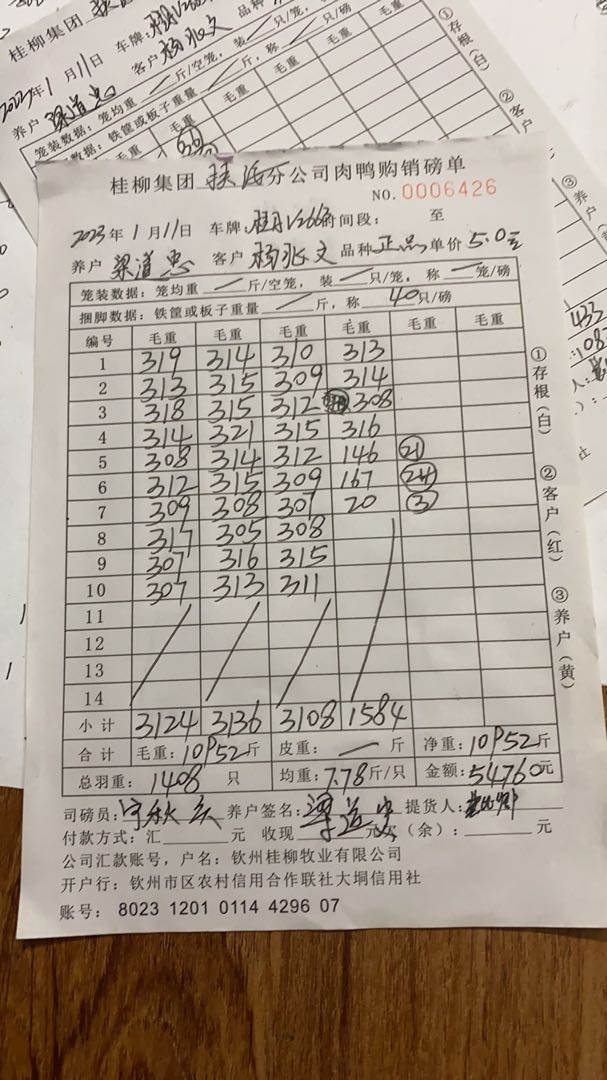 桂柳集团
2023年1月11日 车牌:
养户 梁道忠 客户 杨兆文
笼装数据:笼均重 斤/空笼,装 只/笼,
捆脚数据:铁筐或板子重量 斤,称 只/磅
毛重 毛重 毛重
①存根(白)
②客户
③养户
桂柳集团 分公司肉鸭购销磅单
NO.0006426
2023年1月11日 车牌: 时间段: 至
养户 梁道忠 客户 杨兆文 品种 正品 单价 5.0元
笼装数据:笼均重 — 斤/空笼,装 — 只/笼,称 — 笼/磅
捆脚数据:铁筐或板子重量 — 斤,称 40只/磅
编号 毛重 毛重 毛重 毛重 毛重 毛重
1 319 314 310 313
2 313 315 309 314
3 318 315 312 308
4 314 321 315 316
5 308 314 312 146 ㉑
6 312 315 309 167 ㉔
7 309 308 307 20 ③
8 317 305 308
9 307 316 315
10 307 313 311
11
12
13
14
小计 3124 3136 3108 1584
合计 毛重:10952斤 皮重: — 斤 净重:10952斤
总羽重: 1408 只 均重:7.78斤/只 金额:54760元
①存根(白)
②客户(红)
③养户(黄)
司磅员: 养户签名:梁道忠 提货人:
付款方式:汇 元 收现 元 (余): 元
公司汇款账号,户名:钦州桂柳牧业有限公司
开户行:钦州市区农村信用合作联社大垌信用社
账号: 8023 1201 0114 4296 07